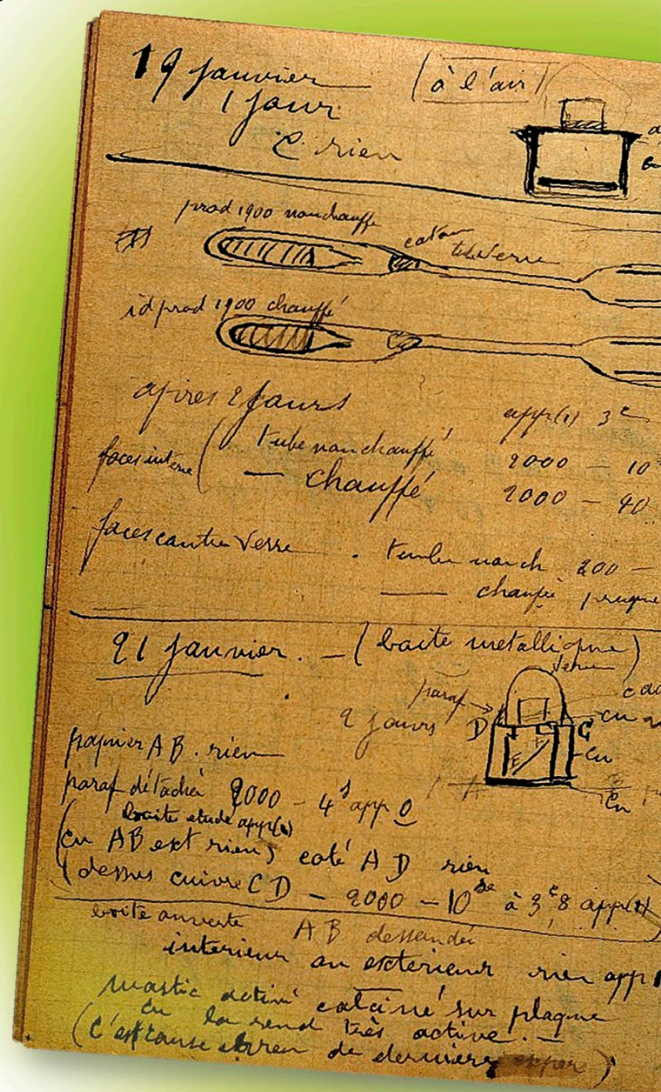 19 janvier (à l'air)
1 jour
C rien
prod 1900 non chauffé
coton
tube verre
id prod 1900 chauffé
après 2 jours app(1) 3c
faces interne ( tube non chauffé 2000 — 10
— chauffé 2000 — 40
faces contre verre . tube non ch 200 —
— chauffé presque
21 janvier. — (boite metallique)
verre
paraf
2 jours D C
cu
E
cu
cu
papier AB. rien
paraf détachée 2000 — 4s app 0
boite etude app(1)
(cu AB ext rien) coté AD rien
(dessus cuivre CD — 2000 — 10 à 3c,8 app(1))
boite ouverte AB dessoudée
interieur ou exterieur rien app
mastic activé calciné sur plaque
cu la rend très active. —
(c'est cause erreur de derniere exper)